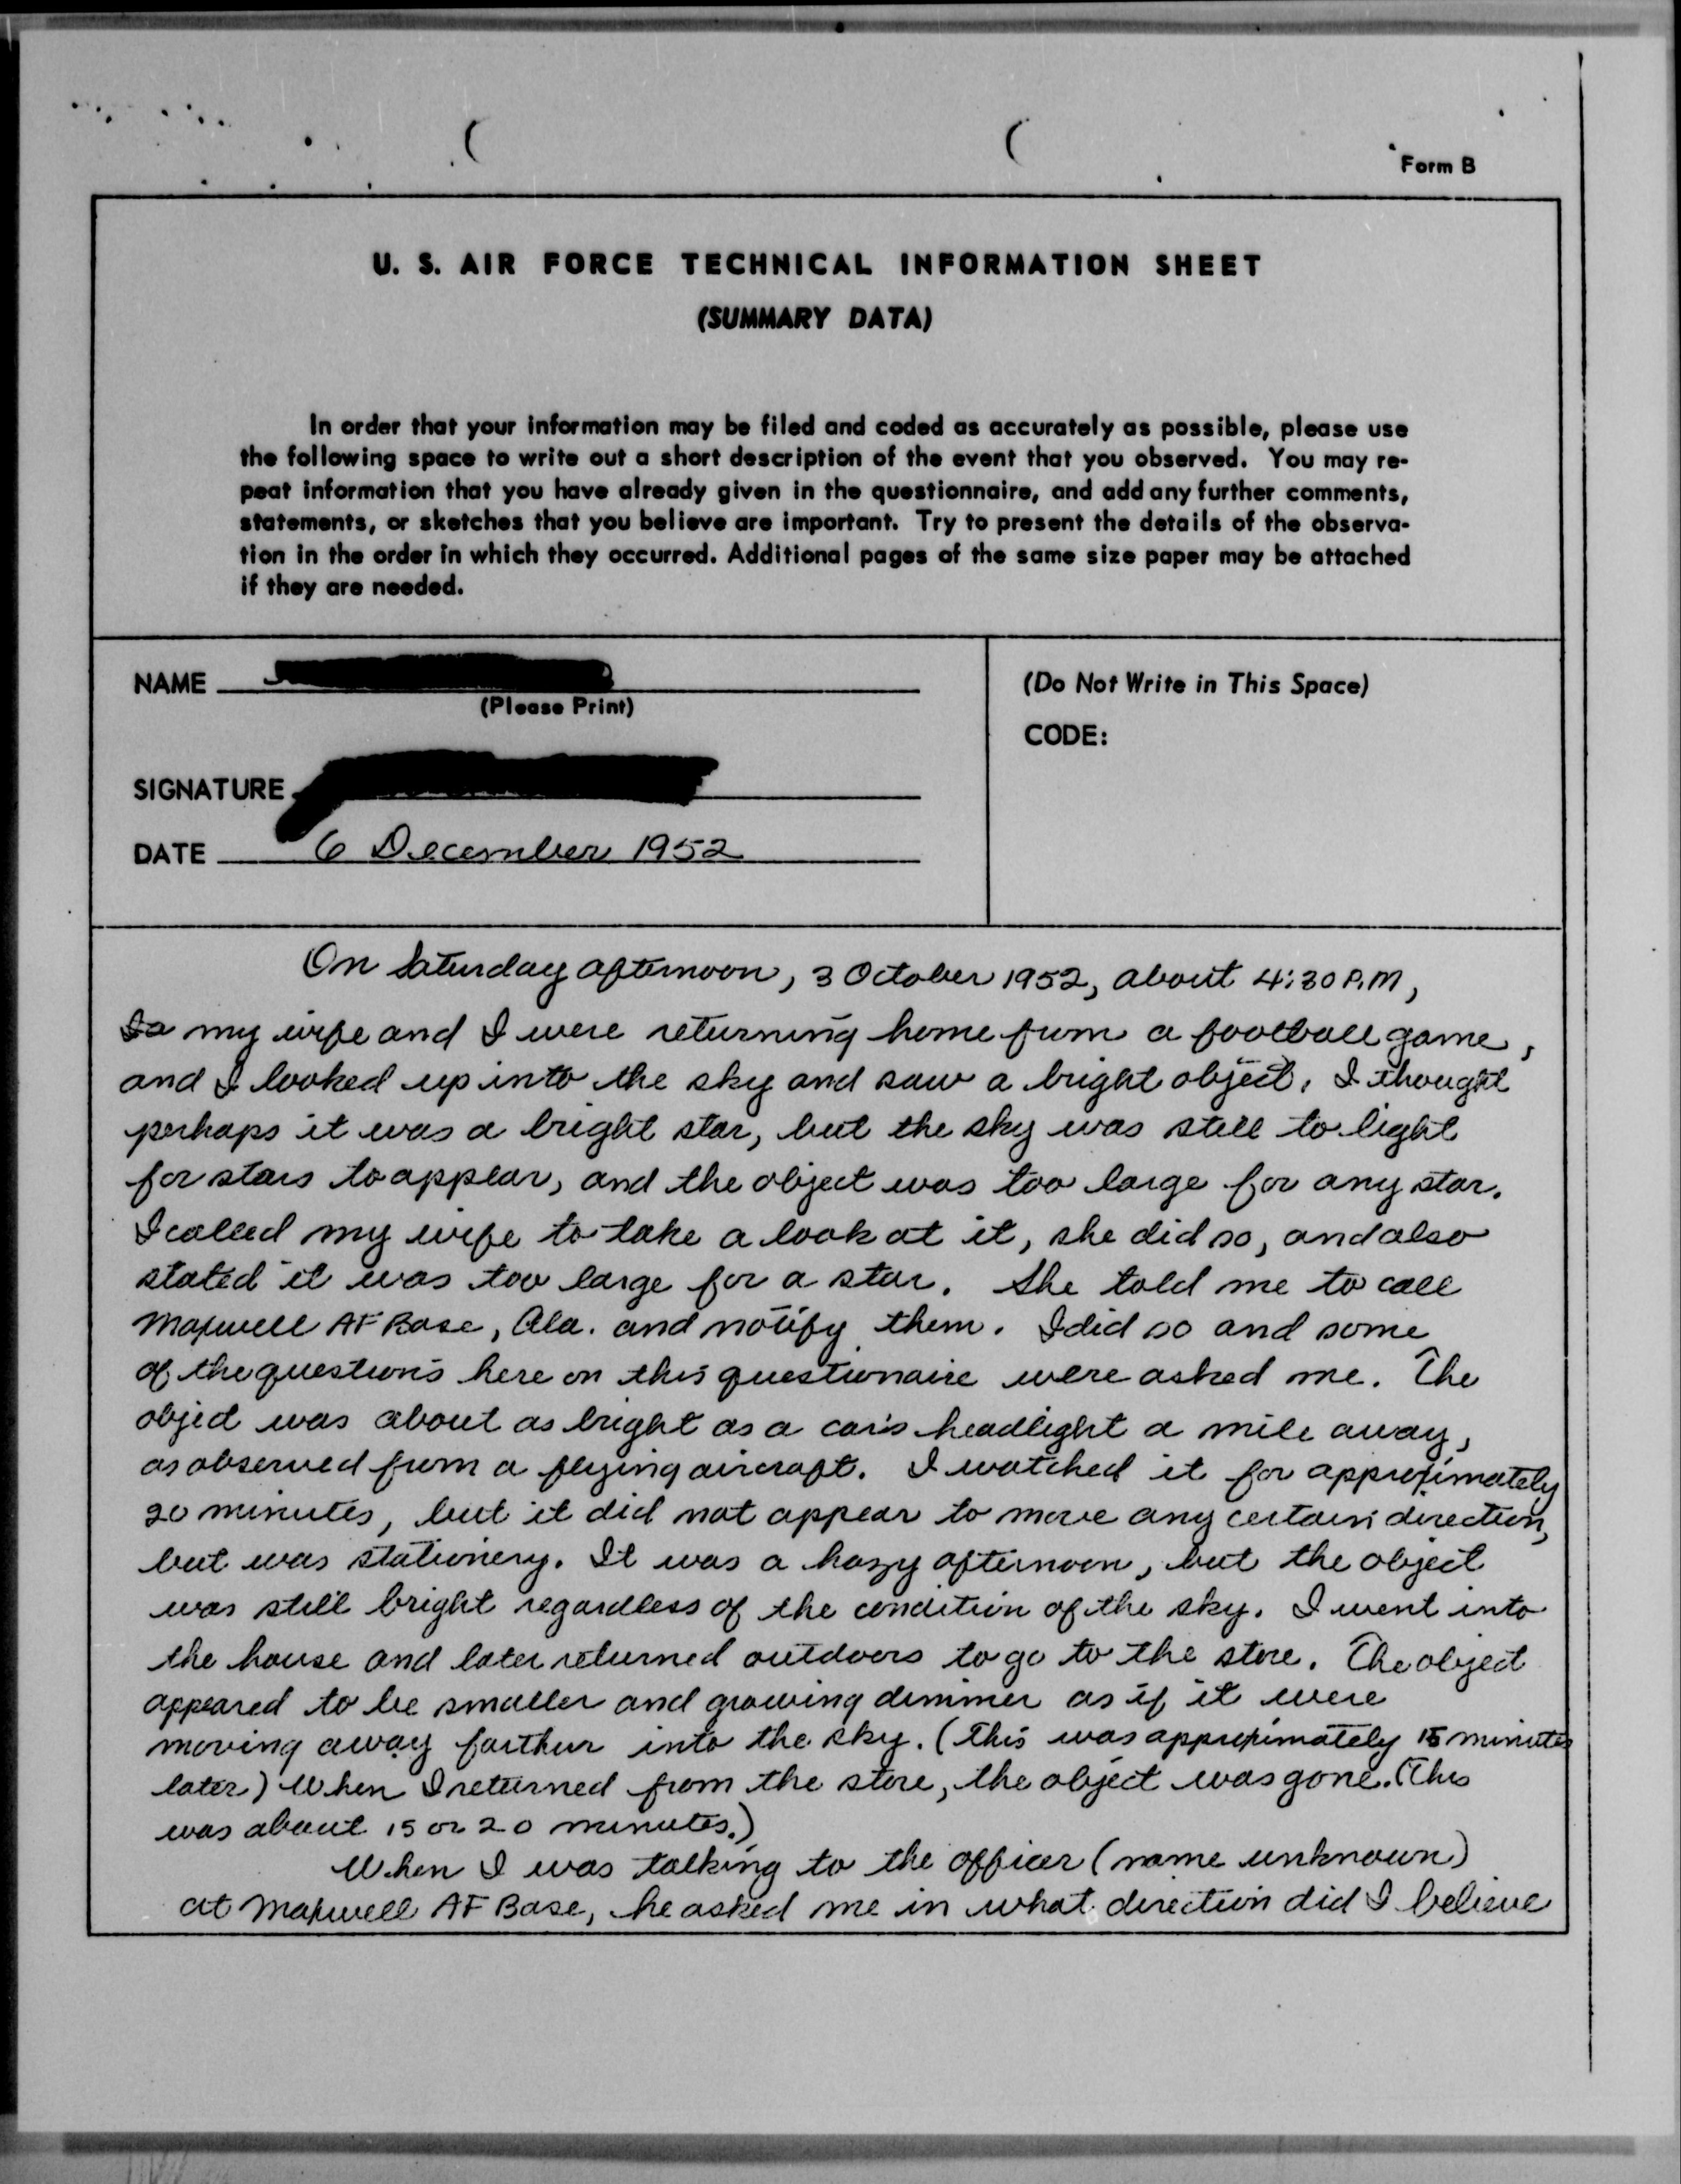 Form B
U. S. AIR FORCE TECHNICAL INFORMATION SHEET
(SUMMARY DATA)
In order that your information may be filed and coded as accurately as possible, please use
the following space to write out a short description of the event that you observed. You may re-
peat information that you have already given in the questionnaire, and add any further comments,
statements, or sketches that you believe are important. Try to present the details of the observa-
tion in the order in which they occurred. Additional pages of the same size paper may be attached
if they are needed.
NAME
(Please Print)
SIGNATURE
DATE 6 December 1952
(Do Not Write in This Space)
CODE:
On Saturday afternoon, 3 October 1952, about 4:30 P.M,
my wife and I were returning home from a football game,
and I looked up into the sky and saw a bright object. I thought
perhaps it was a bright star, but the sky was still to light
for stars to appear, and the object was too large for any star.
I called my wife to take a look at it, she did so, and also
stated it was too large for a star. She told me to call
Maxwell AF Base, Ala. and notify them. I did so and some
of the questions here on this questionaire were asked me. The
object was about as bright as a car's headlight a mile away,
as observed from a flying aircraft. I watched it for approximately
20 minutes, but it did not appear to move any certain direction,
but was stationery. It was a hazy afternoon, but the object
was still bright regardless of the condition of the sky. I went into
the house and later returned outdoors to go to the store. The object
appeared to be smaller and growing dimmer as if it were
moving away farther into the sky. (This was approximately 15 minutes
later) When I returned from the store, the object was gone. (This
was about 15 or 20 minutes.)
When I was talking to the officer (name unknown)
at Maxwell AF Base, he asked me in what direction did I believe